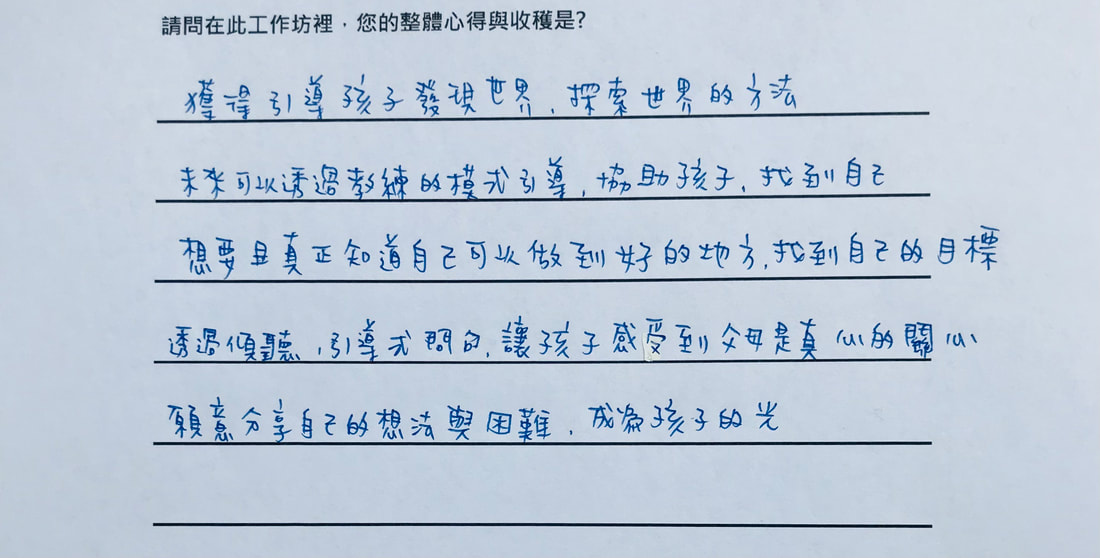 請問在此工作坊裡，您的整體心得與收穫是?
獲得引導孩子發現世界、探索世界的方法
未來可以透過教練的模式引導，協助孩子、找到自己
想要且真正知道自己可以做到好的地方,找到自己的目標
透過傾聽、引導式問句,讓孩子感受到父母是真心的關心
願意分享自己的想法與困難、成為孩子的光